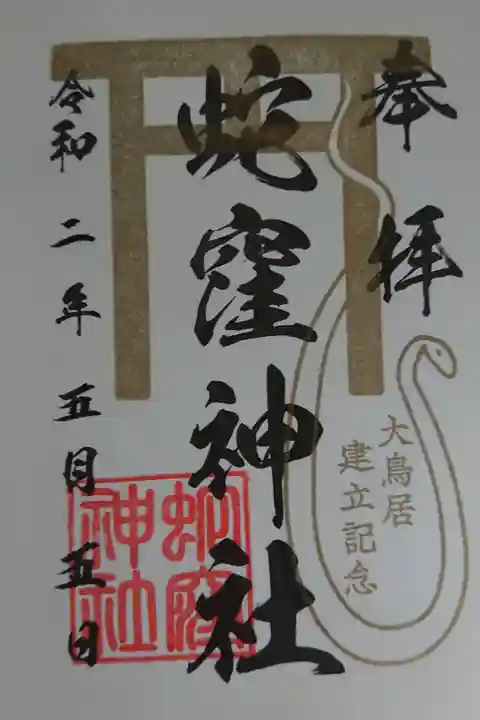 奉拝
大鳥居
建立記念
蛇窪神社
蛇窪
神社
令和二年五月五日